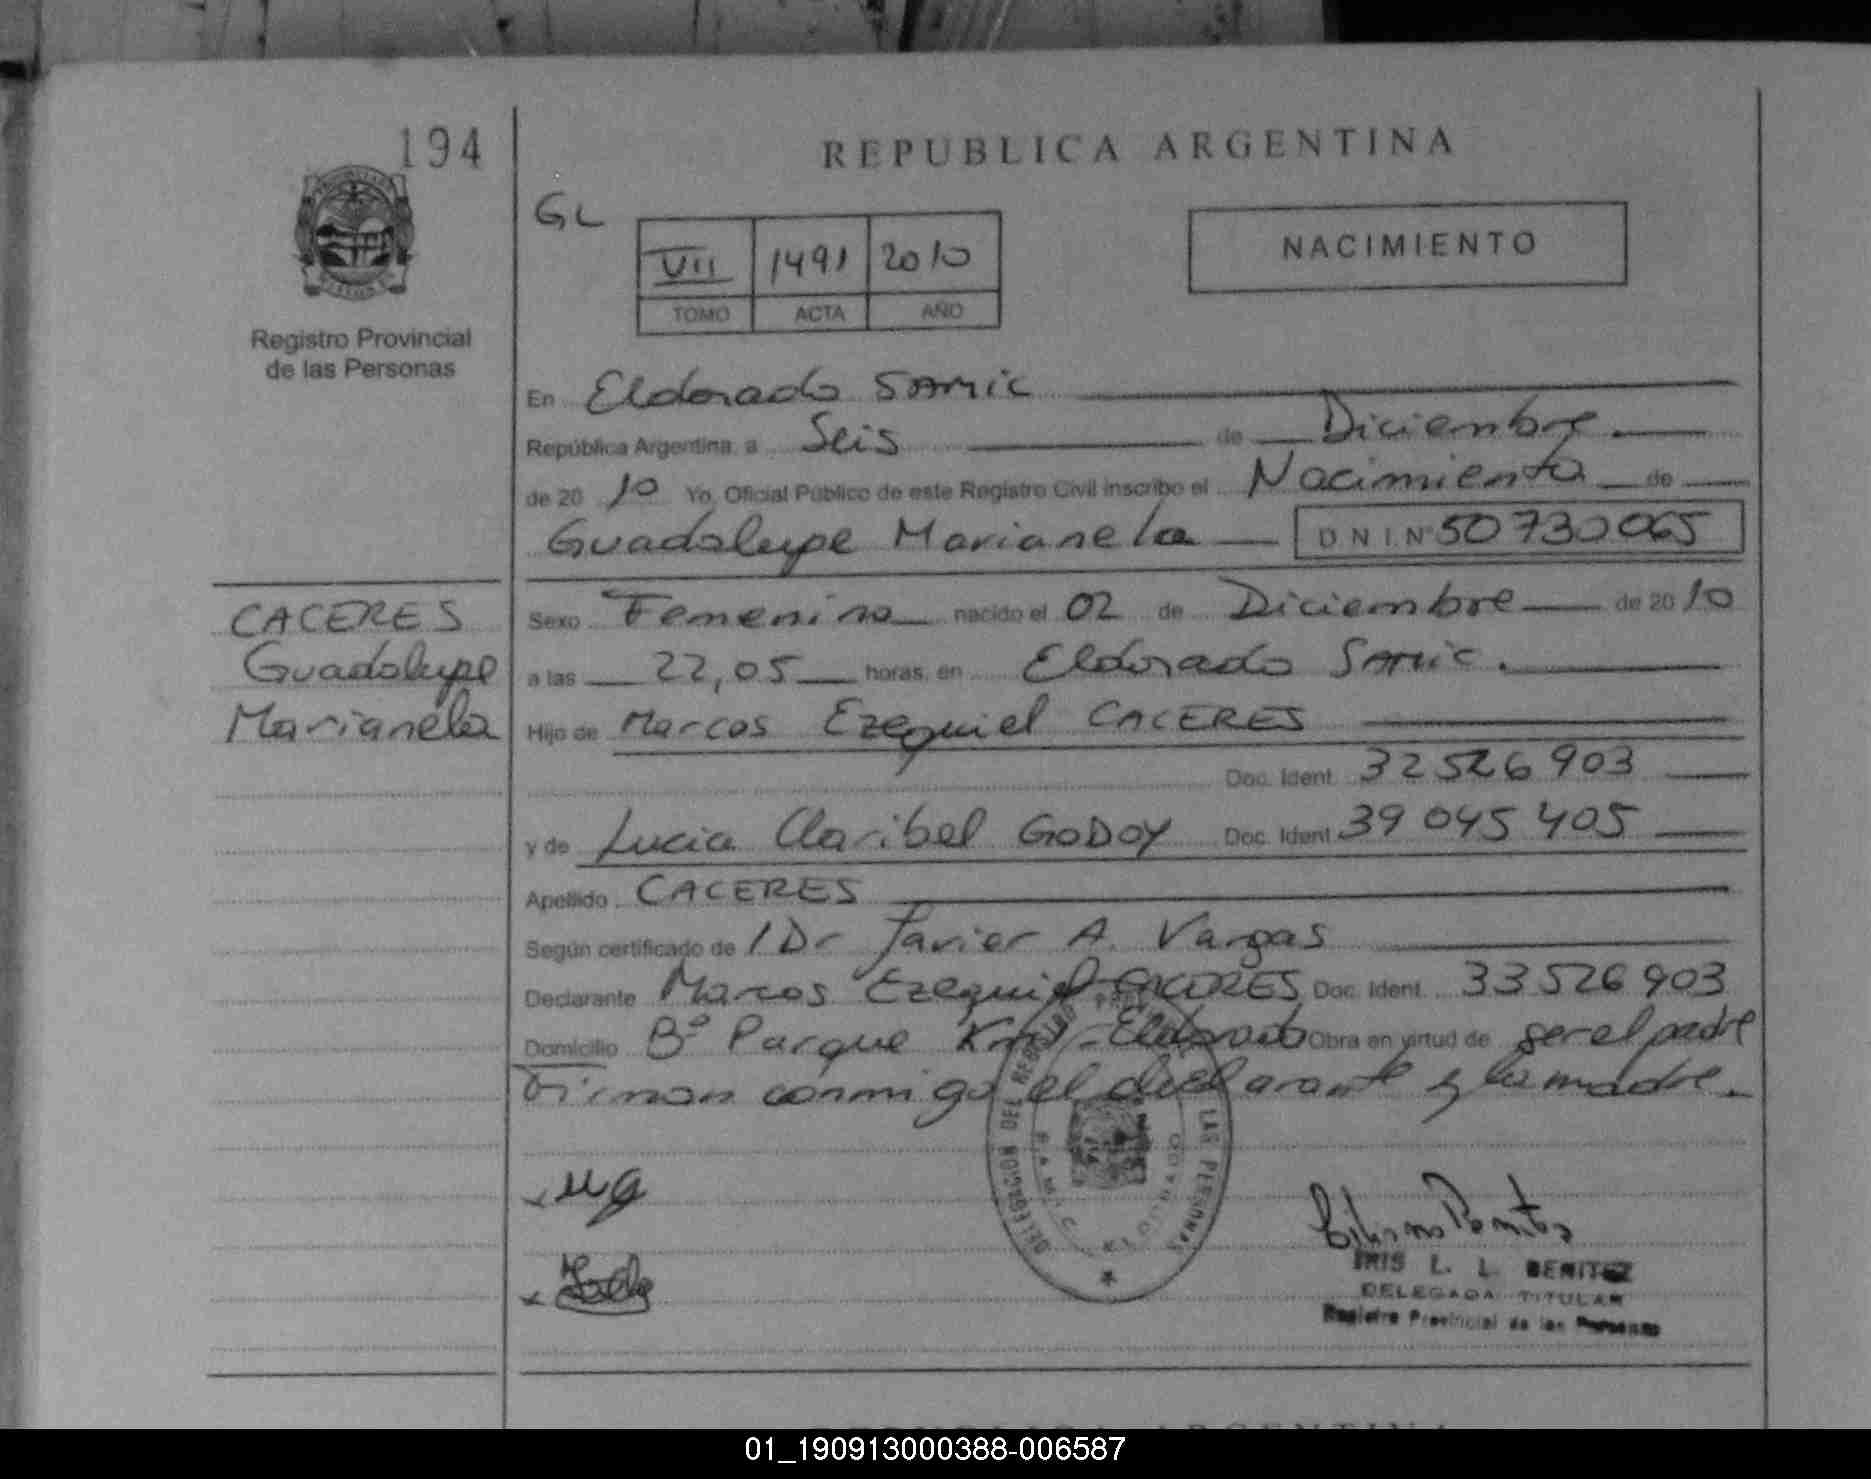 194
REPUBLICA ARGENTINA
GL
VII 1491 2010
TOMO ACTA AÑO
NACIMIENTO
Registro Provincial
de las Personas
En Eldorado SAMIC
República Argentina, a Seis de Diciembre
de 20 10 Yo, Oficial Público de este Registro Civil inscribo el Nacimiento de
Guadalupe Marianela D N I. Nº 50730065
CACERES
Guadalupe
Marianela
Sexo Femenino nacido el 02 de Diciembre de 20 10
a las 22,05 horas, en Eldorado SAMIC.
Hijo de Marcos Ezequiel CACERES
Doc. Ident. 32526903
y de Lucia Claribel GODOY Doc. Ident. 39045405
Apellido CACERES
Según certificado de / Dr Javier A. Vargas
Declarante Marcos Ezequiel CACERES Doc. Ident. 33526903
Domicilio Bº Parque - Eldorado Obra en virtud de ser el padre
Firman conmigo el declarante y la madre.
DELEGACION DEL REGISTRO LAS PERSONAS
SAMIC ELDORADO
IRIS L. L. BENITEZ
DELEGADA TITULAR
Registro Provincial de las Personas
01_190913000388-006587